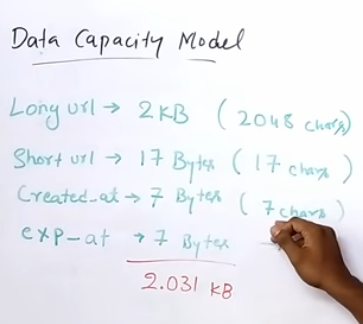 Data Capacity Model
Long url → 2KB (2048 chars)
Short url → 17 Bytes (17 chars)
Created-at → 7 Bytes (7 chars)
exp-at → 7 Bytes
2.031 KB